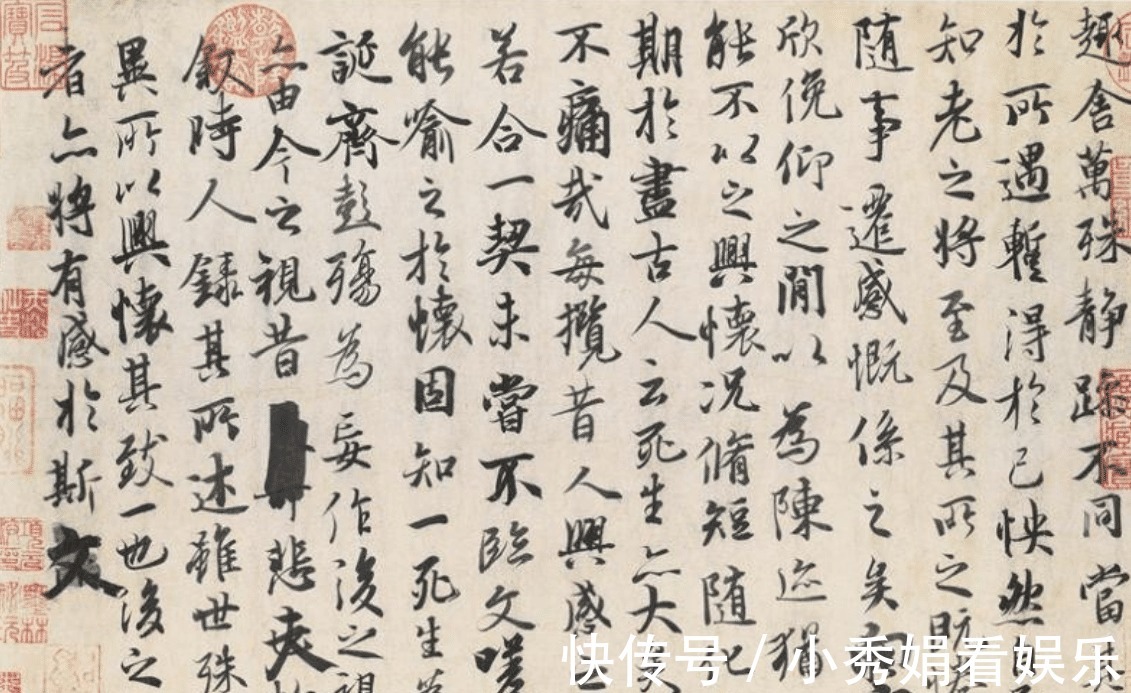 趣舍萬殊静躁不同當
於所遇暫得於己怏然
知老之將至及其所之既
随事遷感慨係之矣向
欣俛仰之閒以為陳迹猶
能不以之興懷况脩短随化
期於盡古人云死生亦大
不痛哉每攬昔人興感
若合一契未嘗不臨文嗟
能喻之於懷固知一死生為
誕齊彭殤為妄作後之視
亦由今之視昔悲夫
叙時人錄其所述雖世殊
異所以興懷其致一也後之
者亦將有感於斯文
快传号 / 小秀娟看娱乐